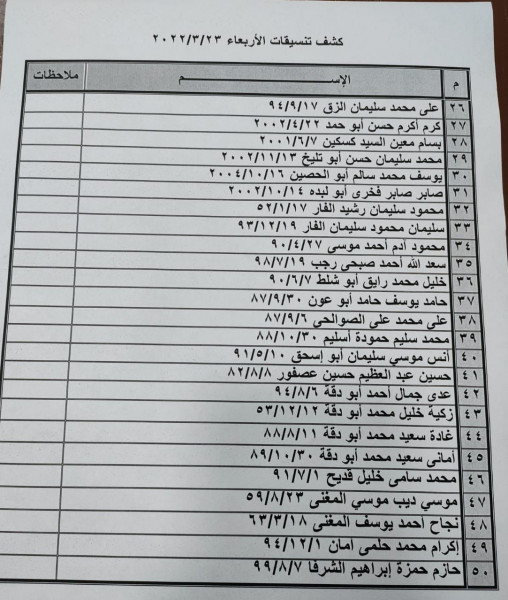 كشف تنسيقات الأربعاء ٢٠٢٢/٣/٢٣
م الإســـــــــم ملاحظات
٢٦ على محمد سليمان الزق ٩٤/٩/١٧
٢٧ كرم أكرم حسن أبو حمد ٢٠٠٢/٤/٢٢
٢٨ بسام معين السيد كسكين ٢٠٠١/٦/٧
٢٩ محمد سليمان حسن أبو تليخ ٢٠٠٢/١١/١٣
٣٠ يوسف محمد سالم أبو الحصين ٢٠٠٤/١٠/١٦
٣١ صابر صابر فخرى أبو لبده ٢٠٠٢/١٠/١٤
٣٢ محمود سليمان رشيد الفار ٥٢/١/١٧
٣٣ سليمان محمود سليمان الفار ٩٣/١٢/١٩
٣٤ محمود أدم أحمد موسى ٩٠/٤/٢٧
٣٥ سعد الله أحمد صبحي رجب ٩٨/٧/١٩
٣٦ خليل محمد رايق أبو شلط ٩٠/٦/٧
٣٧ حامد يوسف حامد أبو عون ٨٧/٩/٣٠
٣٨ على محمد على الصوالحي ٨٧/٩/٦
٣٩ محمد سليم حمودة أسليم ٨٨/١٠/٣٠
٤٠ أنس موسي سليمان أبو إسحق ٩١/٥/١٠
٤١ حسين عبد العظيم حسين عصفور ٨٢/٨/٨
٤٢ عدى جمال أحمد أبو دقة ٩٤/٨/٦
٤٣ زكية خليل محمد أبو دقة ٥٣/١٢/١٢
٤٤ غادة سعيد محمد أبو دقة ٨٨/٨/١١
٤٥ أمانى سعيد محمد أبو دقة ٨٩/١٠/٣٠
٤٦ محمد سامى خليل قديح ٩١/٧/١
٤٧ موسي ديب موسي المغنى ٥٩/٨/٢٣
٤٨ نجاح احمد يوسف المغنى ٦٣/٣/١٨
٤٩ إكرام محمد حلمى امان ٩٤/١٢/١
٥٠ حازم حمزة إبراهيم الشرفا ٩٩/٨/٧